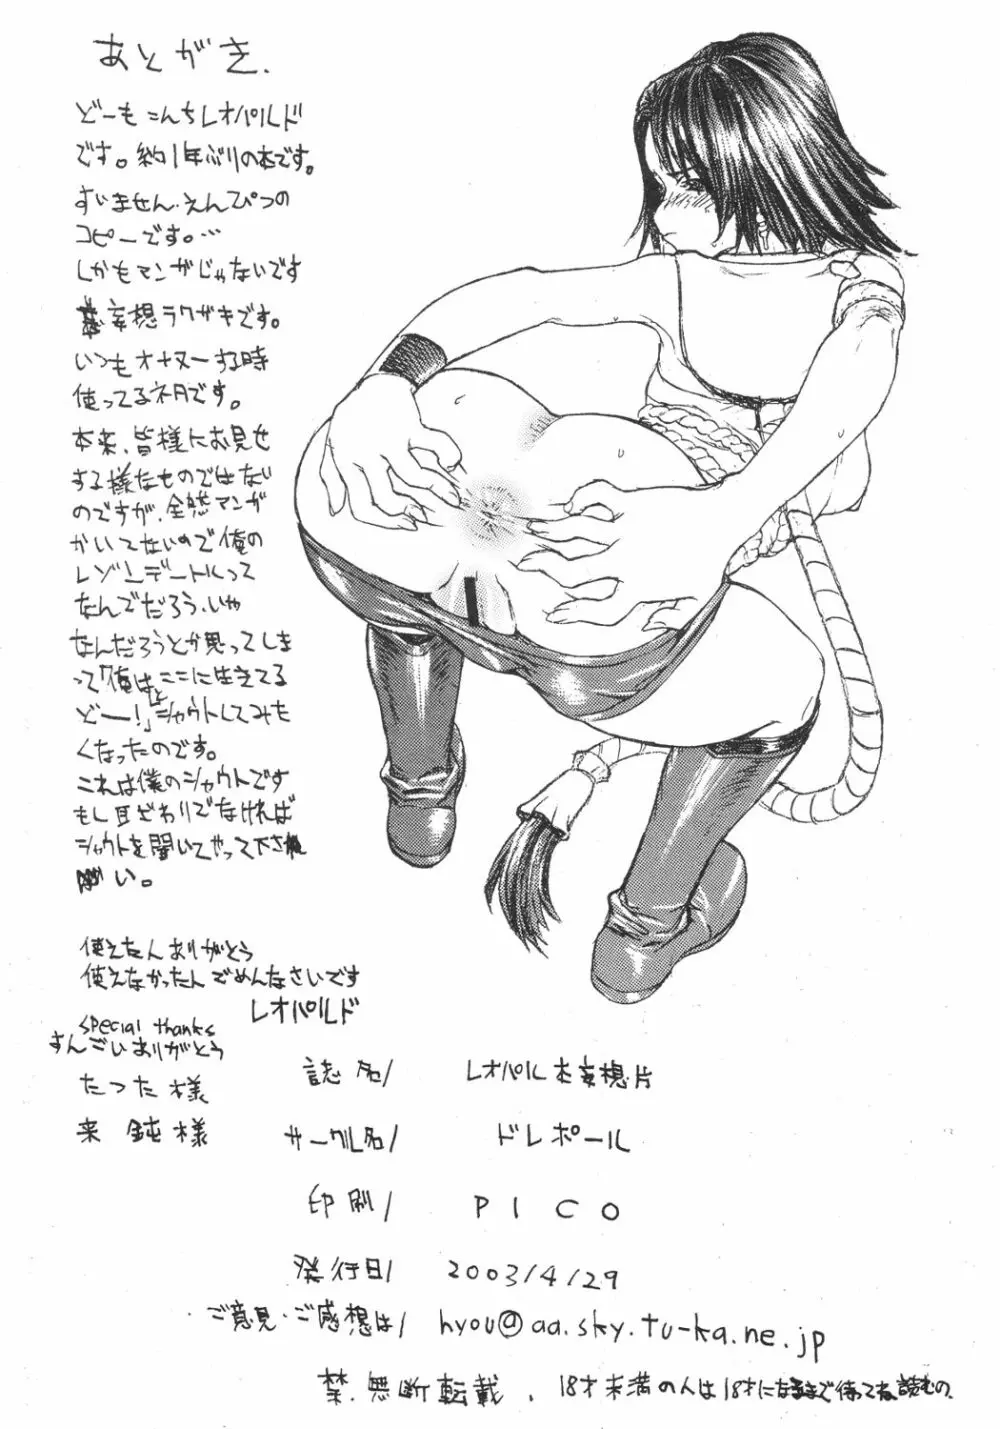 あとがき.
どーもこんちレオパルド
です。約1年ぶりの本です。
すいません・えんぴつの
コピーです。…
しかもマンガじゃないです
妄想ラクガキです。
いつもオナヌーする時
使ってるネタです。
本来、皆様にお見せ
する様なものではない
のですが、全然マンガ
かいてないので俺の
レゾンデートルって
なんでだろう、いや
なんだろうとか思ってしま
って「俺はここに生きてる
どー!」とシャウトしてみた
くなったのです。
これは僕のシャウトです
もし耳ざわりでなければ
シャウトを聞いてやって下さ
い。
使えたんありがとう
使えなかったんごめんなさいです
レオパルド
special thanks
すんごいありがとう
たつた様
来鈍様
誌名/ レオパル本妄想・片
サークル名/ ドレポール
印刷/ PICO
発行日/ 2003/4/29
・ご意見・ご感想は/ hyou@aa.sky.tu-ka.ne.jp
禁・無断転載、18才未満の人は18才になるまで待ってね、読むの.